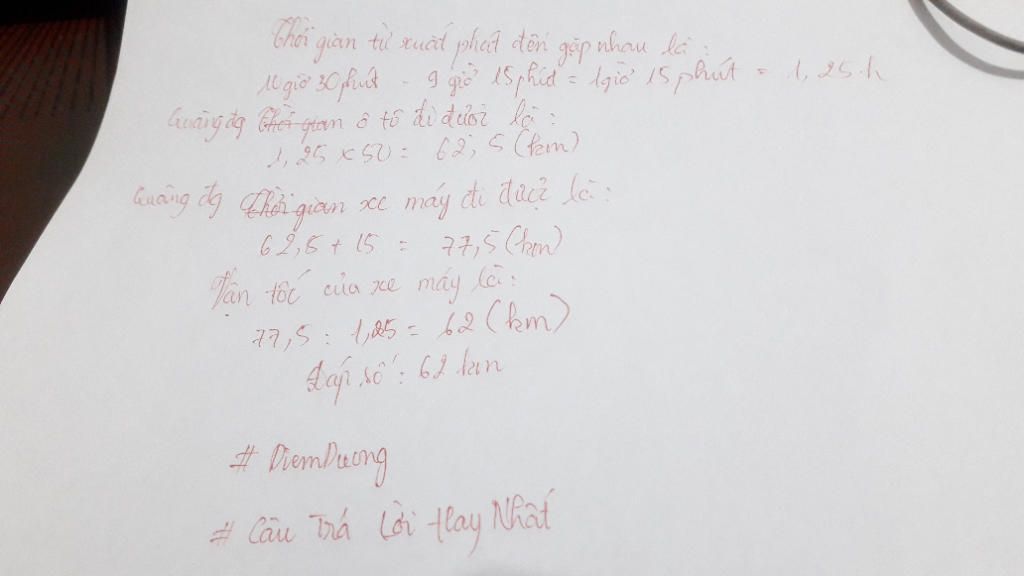 Thời gian từ xuất phát đến gặp nhau là :
10 giờ 30 phút - 9 giờ 15 phút = 1 giờ 15 phút = 1,25 h
Quãng đg Thời gian ô tô đi được là :
1,25 x 50 = 62,5 (km)
Quãng đg Thời gian xe máy đi được là :
62,5 + 15 = 77,5 (km)
Vận tốc của xe máy là :
77,5 : 1,25 = 62 (km)
Đáp số : 62 km
# DiemDuong
# Câu Trả Lời Hay Nhất